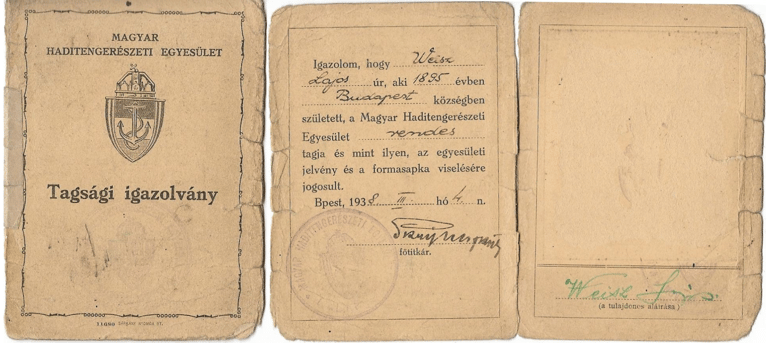 MAGYAR
HADITENGERÉSZETI EGYESÜLET
Tagsági igazolvány
11600
Igazolom, hogy Weisz
Lajos úr, aki 1895 évben
Budapest községben
született, a Magyar Haditengerészeti
Egyesület rendes
tagja és mint ilyen, az egyesületi
jelvény és a formasapka viselésére
jogosult.
Bpest, 1938 III. hó 4. n.
főtitkár.
MAGYAR HADITENGERÉSZETI
Weisz Lajos
(a tulajdonos aláírása)